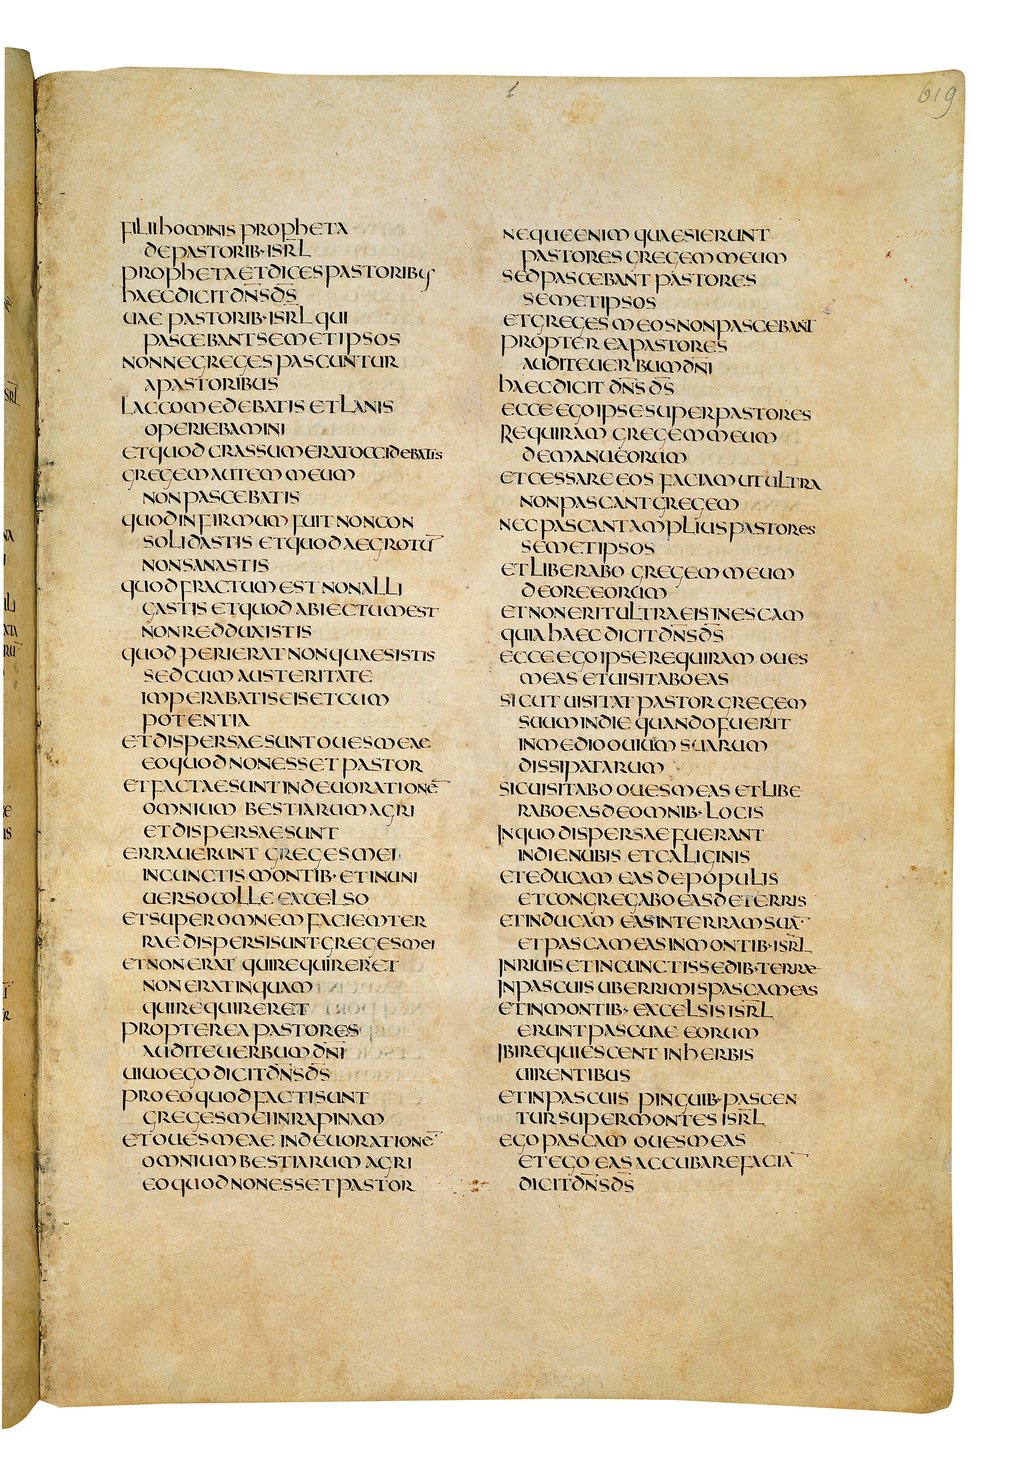 619
FILII hOMINIS PROPhETA
DE PASTORIB· ISRL̄
PROPhETA ET DICES PASTORIBUS
hAEC DICIT DN̄S DS̄
UAE PASTORIB· ISRL̄ QUI
PASCEBANT SEMETIPSOS
NONNE GREGES PASCUNTUR
A PASTORIBUS
LAC COMEDEBATIS ET LANIS
OPERIEBAMINI
ET QUOD CRASSUM ERAT OCCIDEBATIS
GREGEM AUTEM MEUM
NON PASCEBATIS
QUOD INFIRMUM FUIT NON CON
SOLIDASTIS ET QUOD AEGROTŪ
NON SANASTIS
QUOD FRACTUM EST NON ALLI
GASTIS ET QUOD ABIECTUM EST
NON REDDUXISTIS
QUOD PERIERAT NON QUAESISTIS
SED CUM AUSTERITATE
IMPERABATIS EIS ET CUM
POTENTIA
ET DISPERSAE SUNT OUES MEAE
EO QUOD NON ESSET PASTOR
ET FACTAE SUNT IN DEUORATIONĒ
OMNIUM BESTIARUM AGRI
ET DISPERSAE SUNT
ERRAUERUNT GREGES MEI
IN CUNCTIS MONTIB· ET IN UNI
UERSO COLLE EXCELSO
ET SUPER OMNEM FACIEM TER
RAE DISPERSI SUNT GREGES MEI
ET NON ERAT QUI REQUIRERET
NON ERAT INQUAM
QUI REQUIRERET
PROPTEREA PASTORES
AUDITE UERBUM DN̄I
UIUO EGO DICIT DN̄S DS̄
PRO EO QUOD FACTI SUNT
GREGES MEI IN RAPINAM
ET OUES MEAE IN DEUORATIONĒ
OMNIUM BESTIARUM AGRI
EO QUOD NON ESSET PASTOR
NEQUE ENIM QUAESIERUNT
PASTORES GREGEM MEUM
SED PASCEBANT PASTORES
SEMETIPSOS
ET GREGES MEOS NON PASCEBANT
PROPTEREA PASTORES
AUDITE UERBUM DN̄I
hAEC DICIT DN̄S DS̄
ECCE EGO IPSE SUPER PASTORES
REQUIRAM GREGEM MEUM
DE MANU EORUM
ET CESSARE EOS FACIAM UT ULTRA
NON PASCANT GREGEM
NEC PASCANT AMPLIUS PASTORES
SEMETIPSOS
ET LIBERABO GREGEM MEUM
DE ORE EORUM
ET NON ERIT ULTRA EIS IN ESCAM
QUIA hAEC DICIT DN̄S DS̄
ECCE EGO IPSE REQUIRAM OUES
MEAS ET UISITABO EAS
SICUT UISITAT PASTOR GREGEM
SUUM IN DIE QUANDO FUERIT
IN MEDIO OUIUM SUARUM
DISSIPATARUM
SIC UISITABO OUES MEAS ET LIBE
RABO EAS DE OMNIB· LOCIS
IN QUO DISPERSAE FUERANT
IN DIE NUBIS ET CALIGINIS
ET EDUCAM EAS DE POPULIS
ET CONGREGABO EAS DE TERRIS
ET INDUCAM EAS IN TERRAM SUĀ
ET PASCAM EAS IN MONTIB· ISRL̄
IN RIUIS ET IN CUNCTIS SEDIB· TERRAE
IN PASCUIS UBERRIMIS PASCAM EAS
ET IN MONTIB· EXCELSIS ISRL̄
ERUNT PASCUAE EORUM
IBI REQUIESCENT IN hERBIS
UIRENTIBUS
ET IN PASCUIS PINGUIB· PASCEN
TUR SUPER MONTES ISRL̄
EGO PASCAM OUES MEAS
ET EGO EAS ACCUBARE FACIĀ
DICIT DN̄S DS̄